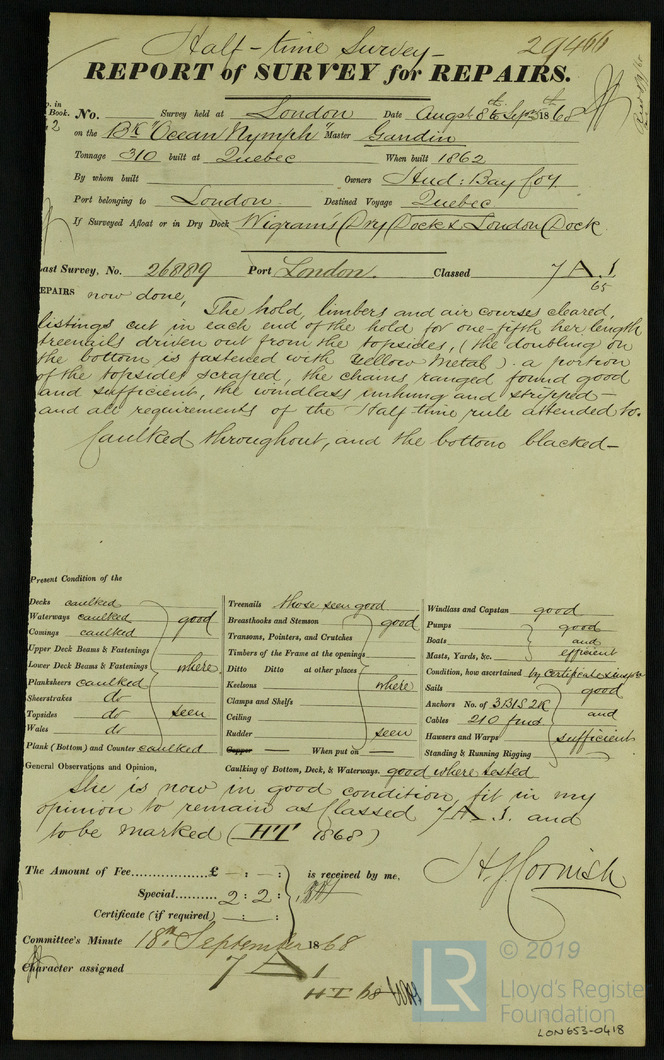 Half-time Survey -
29466
REPORT of SURVEY for REPAIRS.
No. Survey held at London Date Augst 8th to Sept 18 68
on the Bk "Ocean Nymph" Master Gandin
Tonnage 310 built at Quebec When built 1862
By whom built Owners Hud: Bay Coy.
Port belonging to London Destined Voyage Quebec
If Surveyed Afloat or in Dry Dock Wigram's Dry Dock & London Dock
Last Survey, No. 26889 Port London. Classed 7 A.1
65
REPAIRS now done, The hold, limbers and air courses cleared,
listings cut in each end of the hold for one-fifth her length
treenails driven out from the topsides, (the doubling on
the bottom is fastened with Yellow Metal). a portion
of the topsides scraped, the chains ranged found good
and sufficient, the windlass unhung and stripped -
and all requirements of the Half-time rule attended to.
Caulked throughout, and the bottom blacked -
Present Condition of the
Decks caulked
Waterways caulked good
Comings caulked
Upper Deck Beams & Fastenings
Lower Deck Beams & Fastenings where
Planksheers caulked
Sheerstrakes do
Topsides do seen
Wales do
Plank (Bottom) and Counter caulked
Treenails those seen good
Breasthooks and Stemson good
Transoms, Pointers, and Crutches
Timbers of the Frame at the openings
Ditto Ditto at other places
Keelsons where
Clamps and Shelfs
Ceiling
Rudder seen
Copper — When put on —
Windlass and Capstan good
Pumps good
Boats and
Masts, Yards, &c. efficient
Condition, how ascertained by Certificate &
Sails good
Anchors No. of 3B1S2K
Cables 210 fms and
Hawsers and Warps sufficient
Standing & Running Rigging
General Observations and Opinion, Caulking of Bottom, Deck, & Waterways. good where tested
She is now in good condition fit in my
opinion to remain as Classed 7 A.1. and
to be marked (HT 1868)
The Amount of Fee £ — : — : is received by me,
Special 2 : 2 :
Certificate (if required) : :
H J Cornish
Committee's Minute 18th September 1868
Character assigned 7 A 1
HT 68
LR
© 2019
Lloyd's Register
Foundation
LON653-0418